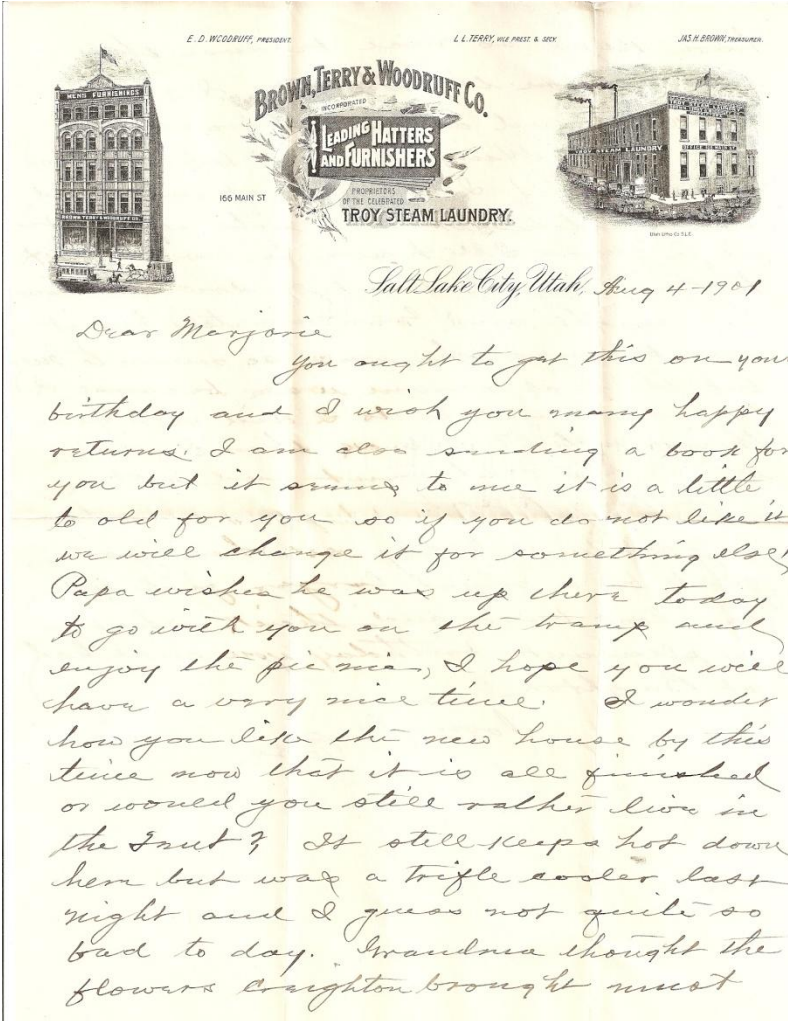 E. D. WOODRUFF, PRESIDENT.
L. L. TERRY, VICE PREST. & SECY.
JAS. H. BROWN, TREASURER.
BROWN, TERRY & WOODRUFF CO.
INCORPORATED
LEADING HATTERS
AND FURNISHERS
166 MAIN ST
PROPRIETORS
OF THE CELEBRATED
TROY STEAM LAUNDRY.
MENS FURNISHINGS
BROWN TERRY & WOODRUFF CO.
TROY STEAM LAUNDRY
STEAM LAUNDRY
OFFICE 166 MAIN ST.
Salt Lake City, Utah, Aug 4 - 1901
Dear Marjorie
You ought to get this on your
birthday and I wish you many happy
returns. I am also sending a book for
you but it seems to me it is a little
to old for you so if you do not like it
we will change it for something else,
Papa wishes he was up there today
to go with you on the tramp and
enjoy the pic nic, I hope you will
have a very nice time. I wonder
how you like the new house by this
time now that it is all finished
or would you still rather live in
the Tent? It still keeps hot down
here but was a trifle cooler last
night and I guess not quite so
bad to day. Grandma thought the
flowers Creighton brought must